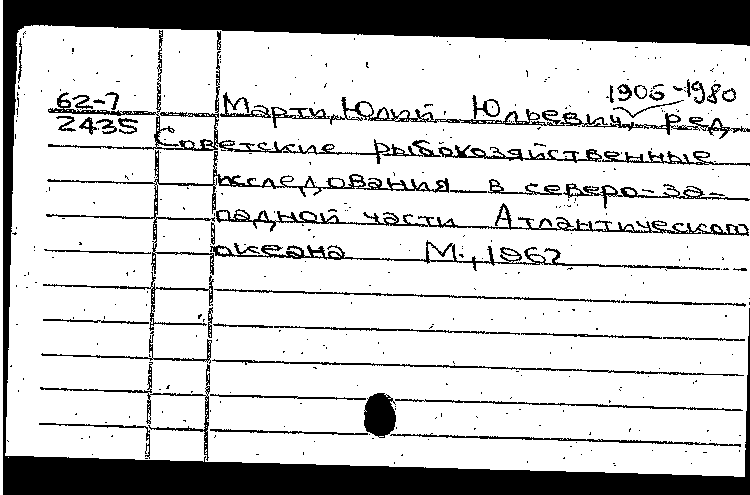 1906-1980
62-7 Марти, Юлий Юльевич, ред.
2435 Советские рыбохозяйственные
исследования в северо-за-
падной части Атлантического
океана М., 1962